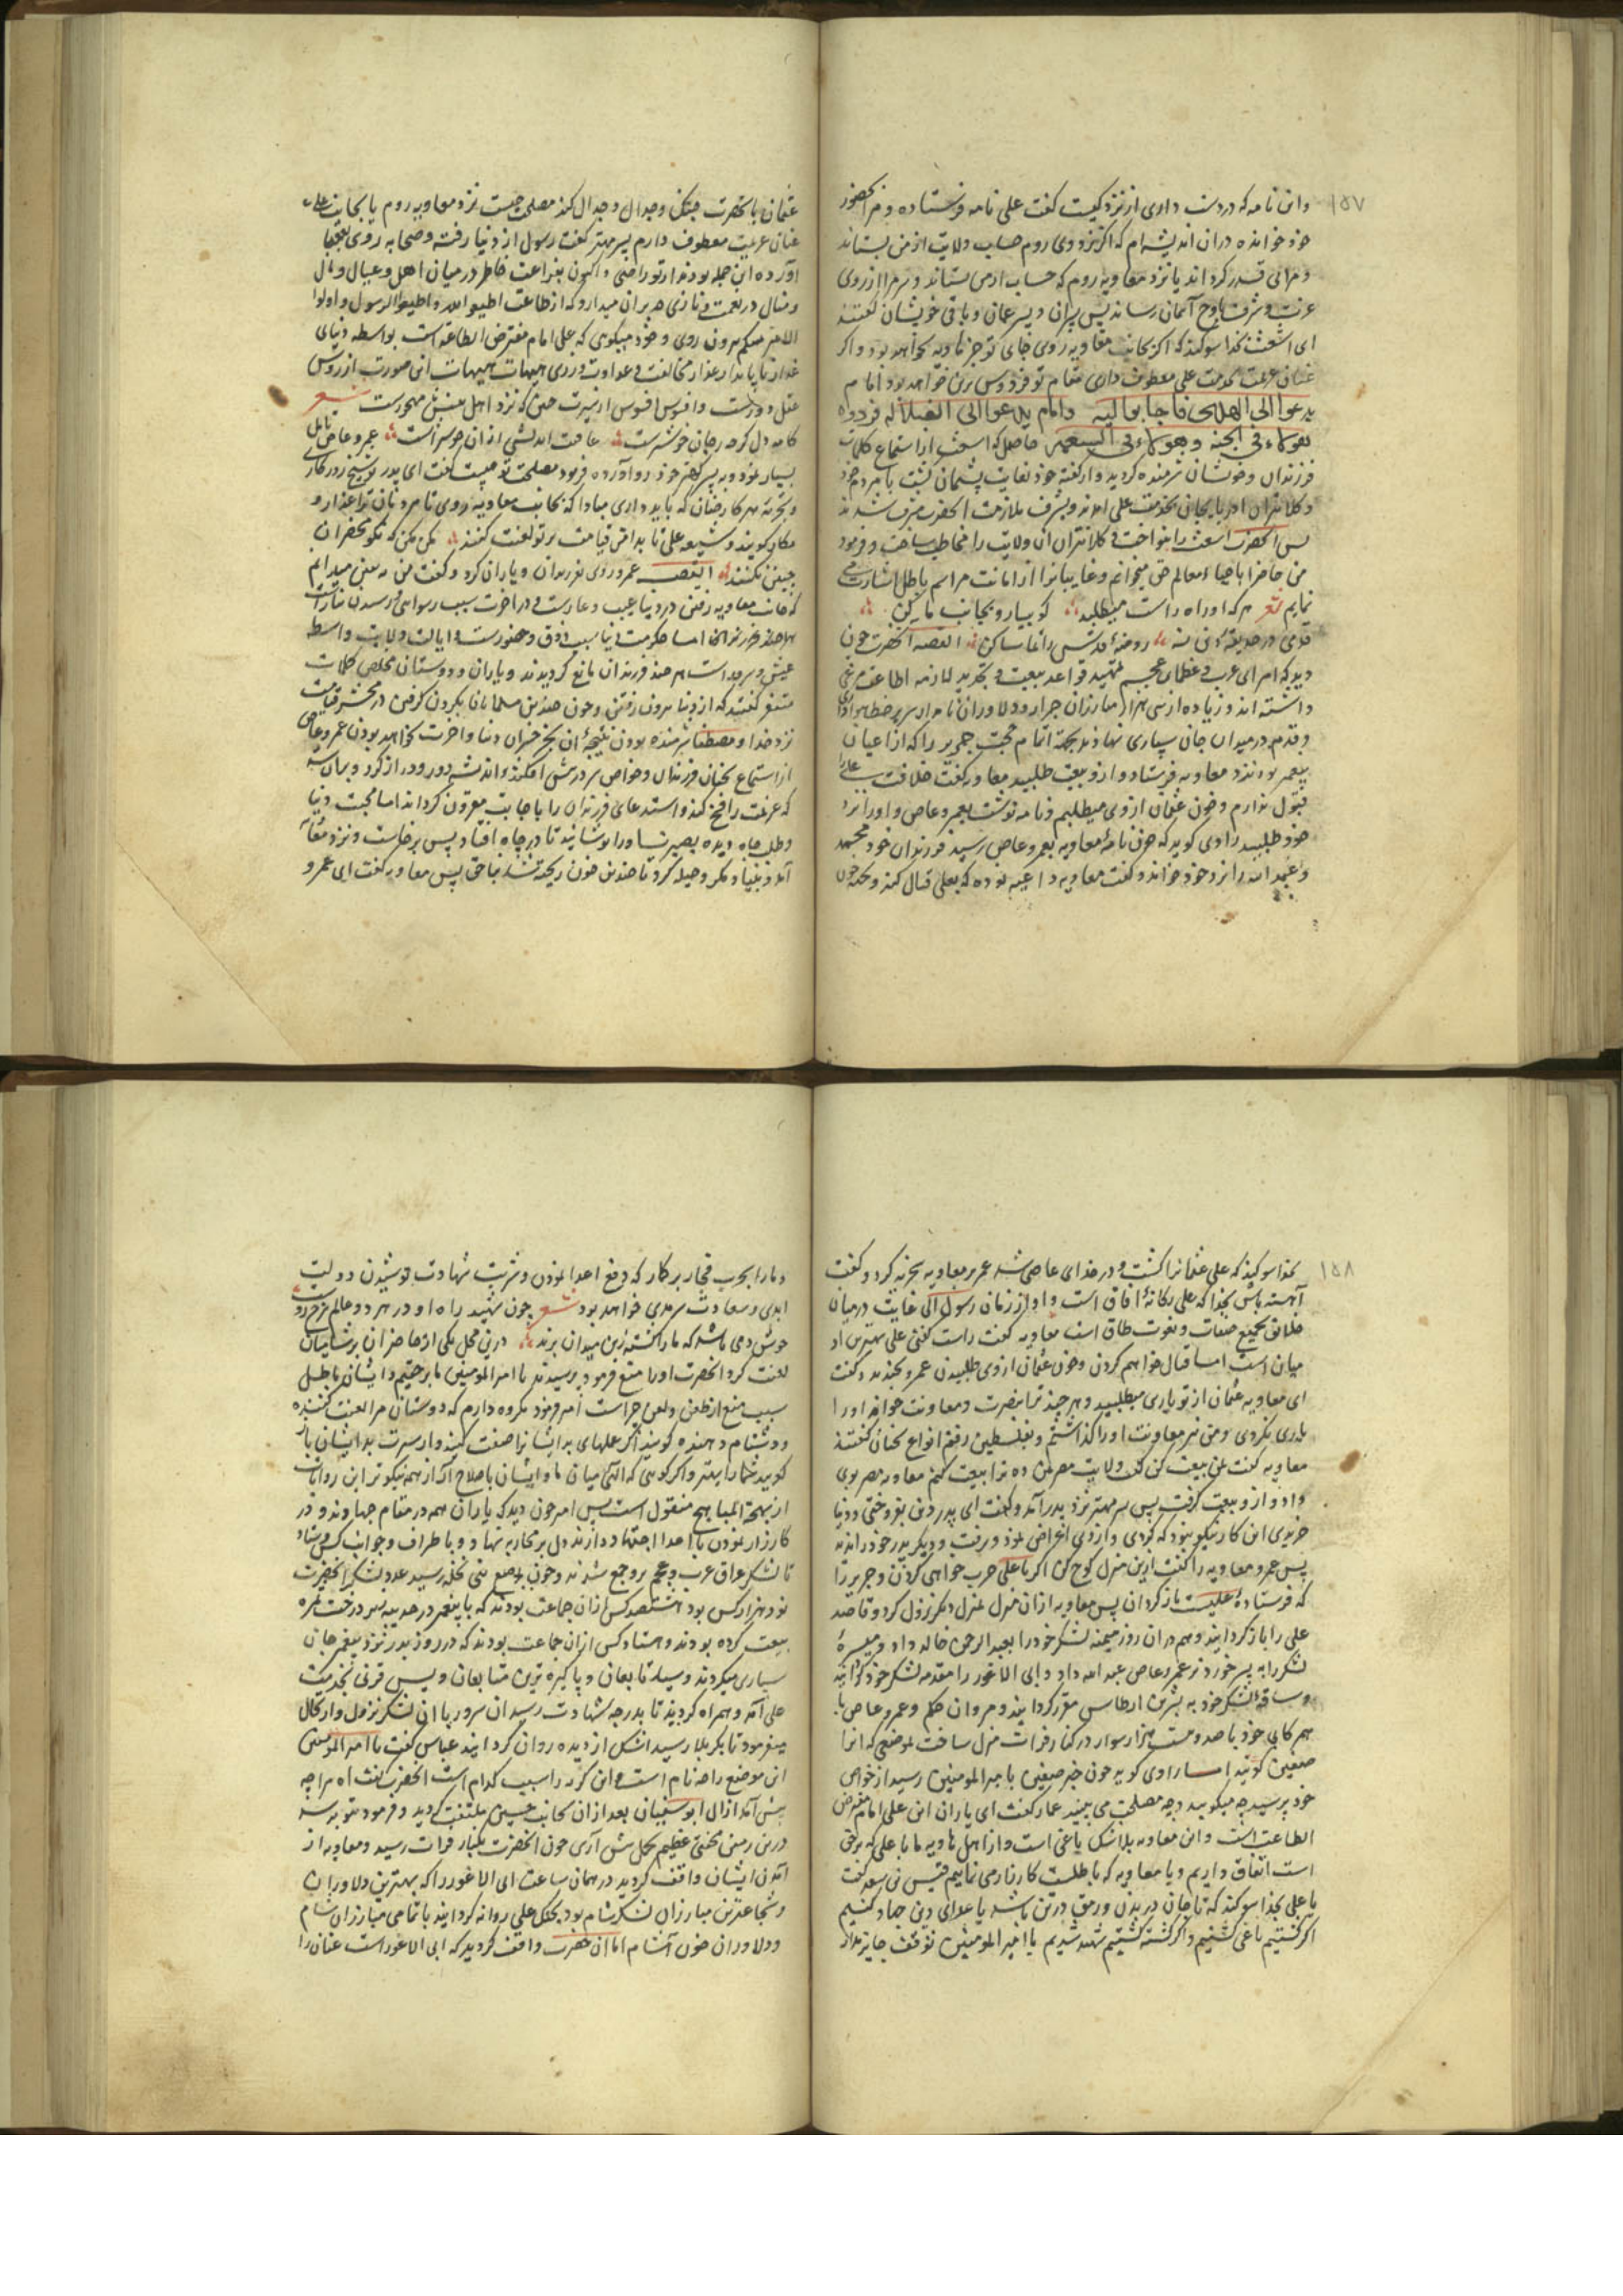 ١٥٧
واین نامه که در دست داری از نزد کیست گفت علی نامه فرستاده و مرا بحضور
خود خوانده در ان اندیشه ام که اگر نزد وی روم حساب ولایت از من بستاند
نزد معاویه روم که حساب از من نستاند و مرا از روی
عزت و شرف باوج آسمان رساند پس پسران و پسر عمان و باقی خویشان گفتند
ای اشعث بخدا سوکند که اکر بجانب معاویه روی جای تو جز هاویه نخواهد بود و اکر
عنان عزیمت بخدمت علی معطوف داری مقام تو فردوس برین خواهد بود امام
یدعوا الی الهدی فاجابوا الیه وامام یدعوا الی الضلاله
هؤلاء فی الجنه وهؤلاء فی السعیر حاصل که اشعث از استماع کلمات
فرزندان و خویشان شرمنده کردید و از کفته خود بغایت پشیمان کشت با مردم خود
و کلانتران اذربایجان بخدمت علی امد و بشرف ملازمت انحضرت مشرف شدند
پس انحضرت اشعث را بنواخت و کلانتران ان ولایت را مخاطب ساخت و فرمود
من حاضرا باحیاء معالم حق میخوانم و غایبانرا از اماتت مراسم باطل اشارت می
نمایم شعر هر که او راه راست میطلبد کو بیا رو بجانب ما کن
روضهٔ قدس را تماشا کن القصه انحضرت چون
دید که امرای عرب و عظمای عجم بتمهید قواعد بیعت و تجدید لوازمه اطاعت مرعی
داشته اند و زیاده از سی هزار مبارزان جرار و دلاوران نامدار سر بر خط
و قدم در میدان جان سپاری نهادند بجهة اتمام حجت جریر را که از اعیان
پیغمبر بود نزد معاویه فرستاد و از و بیعت طلبید معاویه کفت خلافت علی را
قبول ندارم و خون عثمان از وی میطلبم و نامه نوشت بعمرو عاص و او را نزد
خود طلبید راوی کوید که چون نامهٔ معاویه بعمرو عاص رسید فرزندان خود محمد
و عبد الله را نزد خود خواند و کفت معاویه داعیه نموده که بعلی قتال کند و بحکم خون
عثمان با انحضرت جنک و جدال کند مصلحت چیست نزد معاویه روم یا بجانب علی
عنان عزیمت معطوف دارم پسر مهتر کفت رسول از دنیا رفته و صحابه روی بعقبا
آورده این جمله بودند از تو راضی و اکنون بفراغت خاطر در میان اهل و عیال و مال
و منال در نعمت و نازی مدبران میدارد که از طاعت اطیعوا الله و اطیعوا الرسول و اولوا
الامر منکم بیرون روی و خود میکویی که علی امام مفترض الطاعه است بواسطه دنیای
غدار ناپایدار مخالفت و عداوت ورزی هیهات هیهات این صورت از روش
عقل دورست و افسوس افسوس شعر
کام دل کرچه بجان خوشترست عاقبت اندیشی از ان خوشترست عمرو عاص تامل
بسیار نمود و به پسر کهتر خود رو آورده فرمود مصلحت تو چیست کفت ای پدر
مبادا که بجانب معاویه روی تا مردمان ترا غدار و
مکار کویند و شیعه علی تا بدامن قیامت بر تو لعنت کنند مکن مکن که نکو محضران
چنین نکنند القصه عمرو روی بفرزندان و یاران کرد و کفت من یقین میدانم
که جانب معاویه رفتن در دنیا عیب و عارست و در اخرت سبب رسوایی و رسیدن بنارست
عیش و سرورست هر چند فرزندان مانع کردیدند و یاران و دوستان مخلص کلمات
متفق کفتند که از دنیا بیرون رفتن و خون چندین مسلمانان بکردن کرفتن و در محشر قیامت
نزد خدا و مصطفی شرمنده بودن نتیجهٔ ان بجز خسران دنیا و اخرت نخواهد بودن عمرو عاص
از استماع سخنان فرزندان و خواص سر در پیش افکند و اندیشه دور و دراز کرد و بران شد
که عزیمت را فسخ کند و استدعای فرزندان را باجابت مقرون کرداند اما محبت دنیا
و طلب جاه دیده بصیرت او را پوشانید تا در چاه افتاد پس برخاست و نزد معاویه
آمد و بنیاد مکر و حیله کرد تا چندین خون ریخته شد بناحق پس معاویه کفت ای عمرو
١٥٨
بخدا سوکند که علی عثمانرا کشت و در خدای عاصی شد عمر بر معاویه سخریه کرد و کفت
آهسته باش بخدا که علی یکانهٔ افاق است و او از زمان رسول الی غایت در میان
خلایق بجمیع صفات و نعوت طاق است معاویه کفت راست کفتی علی بهترین
میان است اما قتال خواهم کردن و خون عثمان از وی طلبیدن عمرو بخندید و کفت
ای معاویه عثمان از تو یاری میطلبید و هر چند ترا بنصرت و معاونت خواند او را
یاری نکردی و من نیز معاونت او را کذاشتم و بفلسطین رفتم انواع سخنان کفتند
معاویه کفت بمن بیعت کن کفت ولایت مصر بمن ده تا بیعت کنم معاویه مصر بوی
داد و از و بیعت کرفت پس پسر مهتر نزد پدر آمد و کفت ای پدر دین بفروختی و دنیا
خریدی این کار نیکو نبود که کردی و از وی اعراض نمود و برفت و دیکر پدر خود را ندید
پس عمرو معاویه را کفت ازین منزل کوچ کن اکر با علی حرب خواهی کردن و جریر را
که فرستادهٔ علیست باز کردان پس معاویه از ان منزل بمنزل دیکر نزول کرد و قاصد
علی را باز کردانید و هم در ان روز میمنه لشکر خود را بعبد الرحمن خالد داد و میسرهٔ
لشکر را به پسر خورد تر عمرو عاص عبد الله داد و ابی الاعور را مقدمه لشکر خود کردانید
و ساقهٔ لشکر خود به بشر بن ارطاس مقرر کردانید و مروان حکم و عمرو عاص با
هم کابی خود با صد و بیست هزار سوار در کنار فرات منزل ساخت بموضعی که انرا
صفین کویند اما راوی کوید چون خبر صفین با میر المومنین رسید از خواص
خود پرسید چه میکویید و چه مصلحت می بینید عمار کفت ای یاران این علی امام مفترض
الطاعت است و این معاویه بلاشک یاغی است و از اهل هاویه ما با علی که برحق
است اتفاق داریم و با معاویه که باطلست کارزار می نماییم قیس بن سعد کفت
یا علی بخدا سوکند که تا جان در بدن و رمق در تن باشد با عدای دین جهاد کنیم
اکر کشتیم یاغی کشتیم و اکر کشته کشتیم شهید شدیم یا امیر المومنین توقف جایز مدار
و ما را بحرب فجار برکار که دفع اعدا نمودن و شربت شهادت نوشیدن دولت
ابدی و سعادت سرمدی خواهد بود شعر چون شهید راه او در هر دو عالم سرخ روست
خوش دمی باشد که ما را کشته زین میدان برند درین محل یکی از حاضران بر شامیان
لعنت کرد انحضرت او را منع فرمود پرسیدند یا امیر المومنین ما برحقیم و ایشان باطل
سبب منع از طعن و لعن چراست امیر فرمود مکروه دارم که دوستان مرا لعنت کننده
و دشنام دهنده کویند اکر عملهای بد ایشانرا صفت کنید و از سیرت بد ایشان باز
کویید شما را بهتر و اکر کویی که الهی میان ما و ایشان باصلاح آر از همه نیکوتر این روایات
از بهجة المباهج منقول است پس امیر چون دید که یاران همه در مقام جهاد و در
کارزار نمودن با اعدا اجتهاد دارند دل بر محاربه نهاد و باطراف و جوانب کس فرستاد
تا لشکر عراق عرب و عجم بر وجمع شدند و چون بموضع نخیله رسید عدد لشکر انحضرت
نود هزار کس بود هشتصد کس از ان جماعت بودند که با پیغمبر در حدیبیه بزیر درخت ثمره
بیعت کرده بودند و هشتاد کس از ان جماعت بودند که در روز بدر نزد پیغمبر جان
سپاری میکردند و سید تابعان و پاکیزه ترین متابعان ویس قرنی بخدمت
علی آمد و همراه کردید تا بدرجه شهادت رسید ان سرور با ان لشکر نزول و ارتحال
میفرمود تا بکربلا رسید اشک از دیده روان کردانید عباس کفت یا امیر المومنین
این موضع را چه نام است و این کریه را سبب کدام است انحضرت کفت اه مرا چه
پیش آمد از ال ابوسفیان بعد از ان بجانب حسین ملتفت کردید و فرمود
درین زمین محنتی عظیم بحل پیش آری چون انحضرت بکنار فرات رسید و معاویه از
آمدن ایشان واقف کردید در همان ساعت ابی الاعور را که بهترین دلاوران
و شجاعترین مبارزان لشکر شام بود بجنک علی روانه کردانید با تمامی مبارزان شام
و دلاوران خون آشام اما ان حضرت واقف کردید که ابی الاعور است عنان را